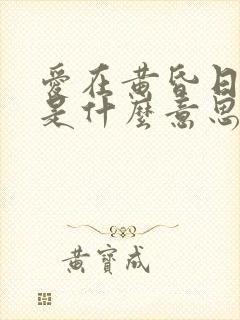 愛在黃昏日
是什麼意思
黃寶成